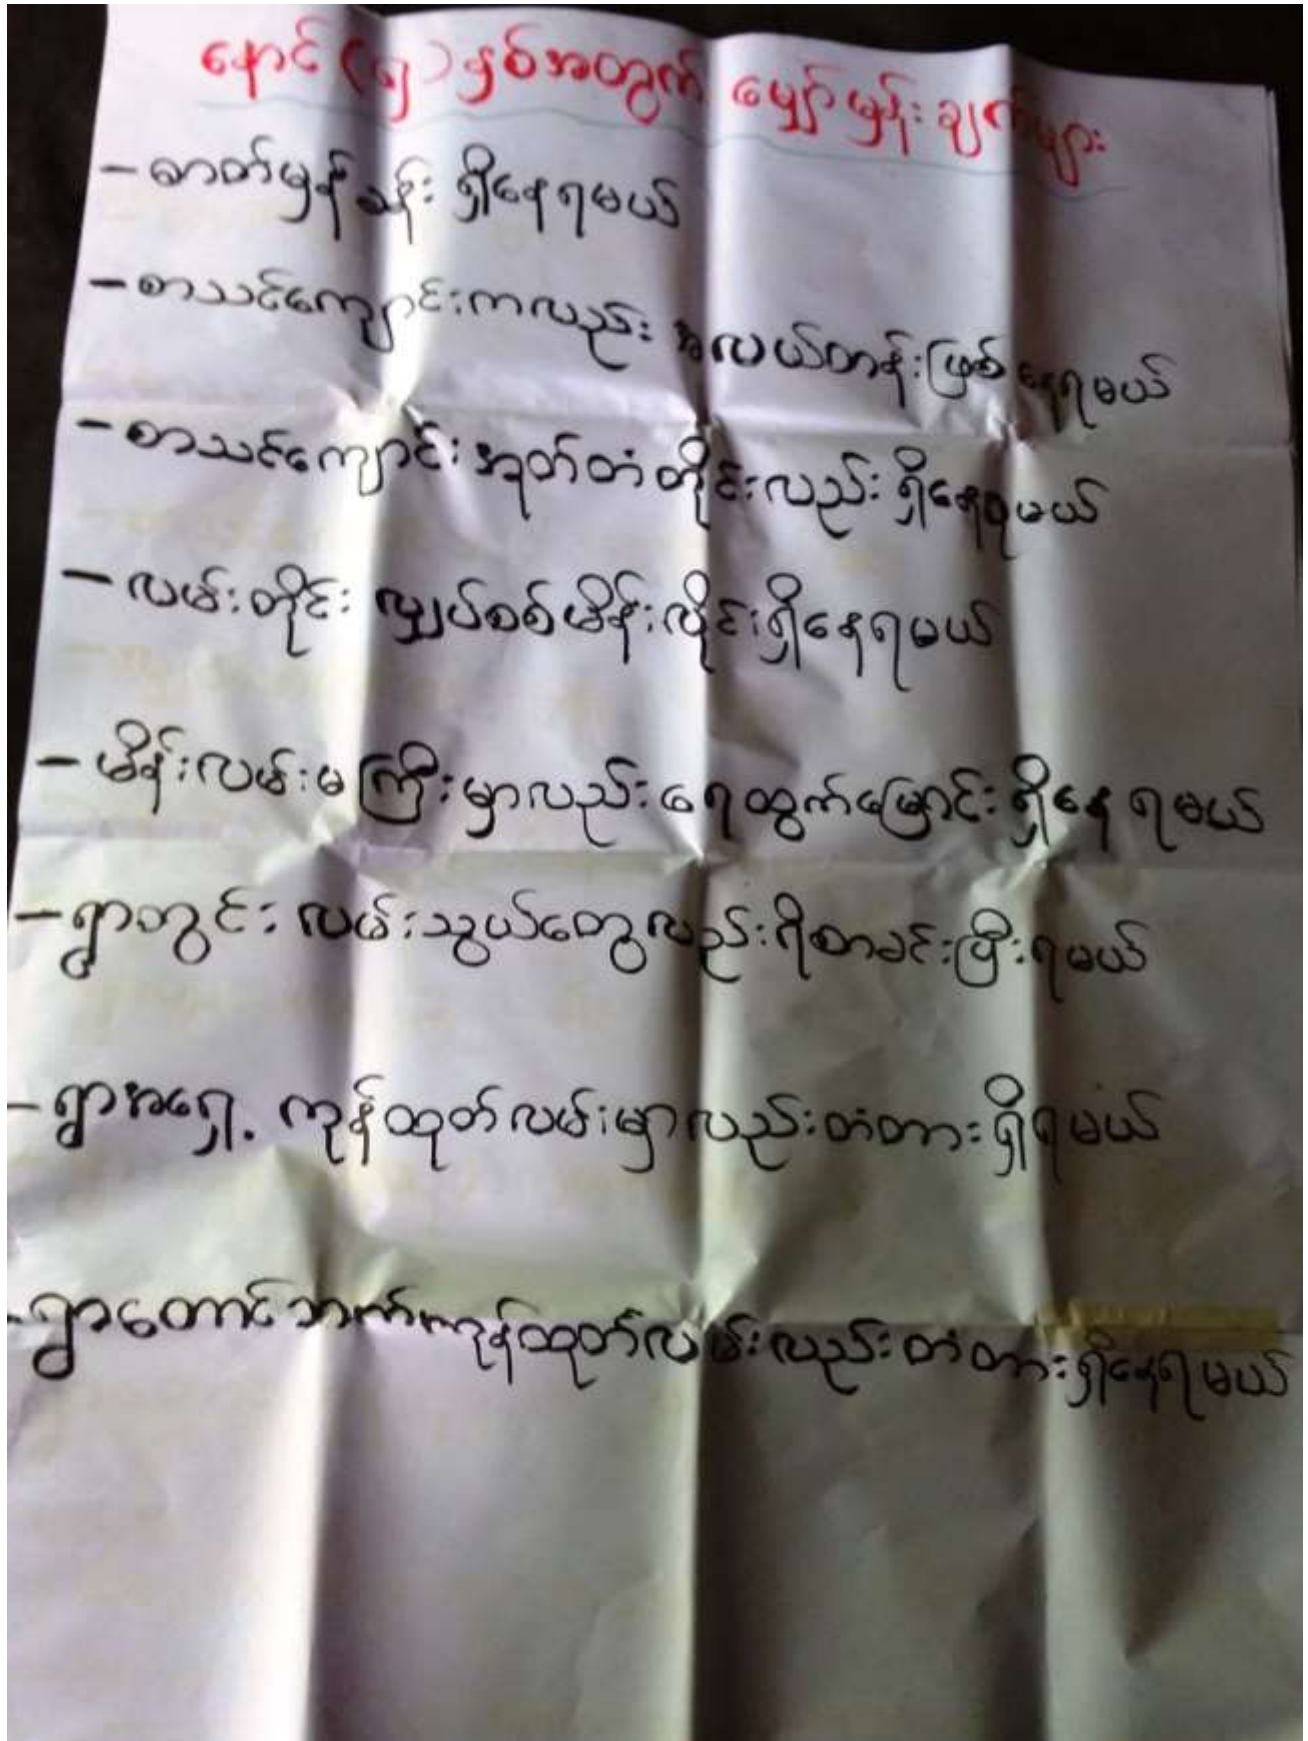 နောင်(၅)နှစ်အတွက် မျှော်မှန်းချက်များ
- ဓာတ်မှန်ခန်း ရှိနေရမယ်
- စာသင်ကျောင်းကလည်း အလယ်တန်းဖြစ်နေရမယ်
- စာသင်ကျောင်း အုတ်တံတိုင်းလည်း ရှိနေရမယ်
- လမ်းတိုင်း လျှပ်စစ်မိန်းလိုင်းရှိနေရမယ်
- မိန်းလမ်းမကြီးမှာလည်း ရေထွက်မြောင်း ရှိနေရမယ်
- ရွာတွင်း လမ်းသွယ်တွေလည်း ဂိတခင်းပြီးရမယ်
- ရွာအရှေ့ ကုန်ထုတ်လမ်းမှာလည်း တံတား ရှိရမယ်
- ရွာတောင်ဘက်ကုန်ထုတ်လမ်းလည်း တံတားရှိနေရမယ်